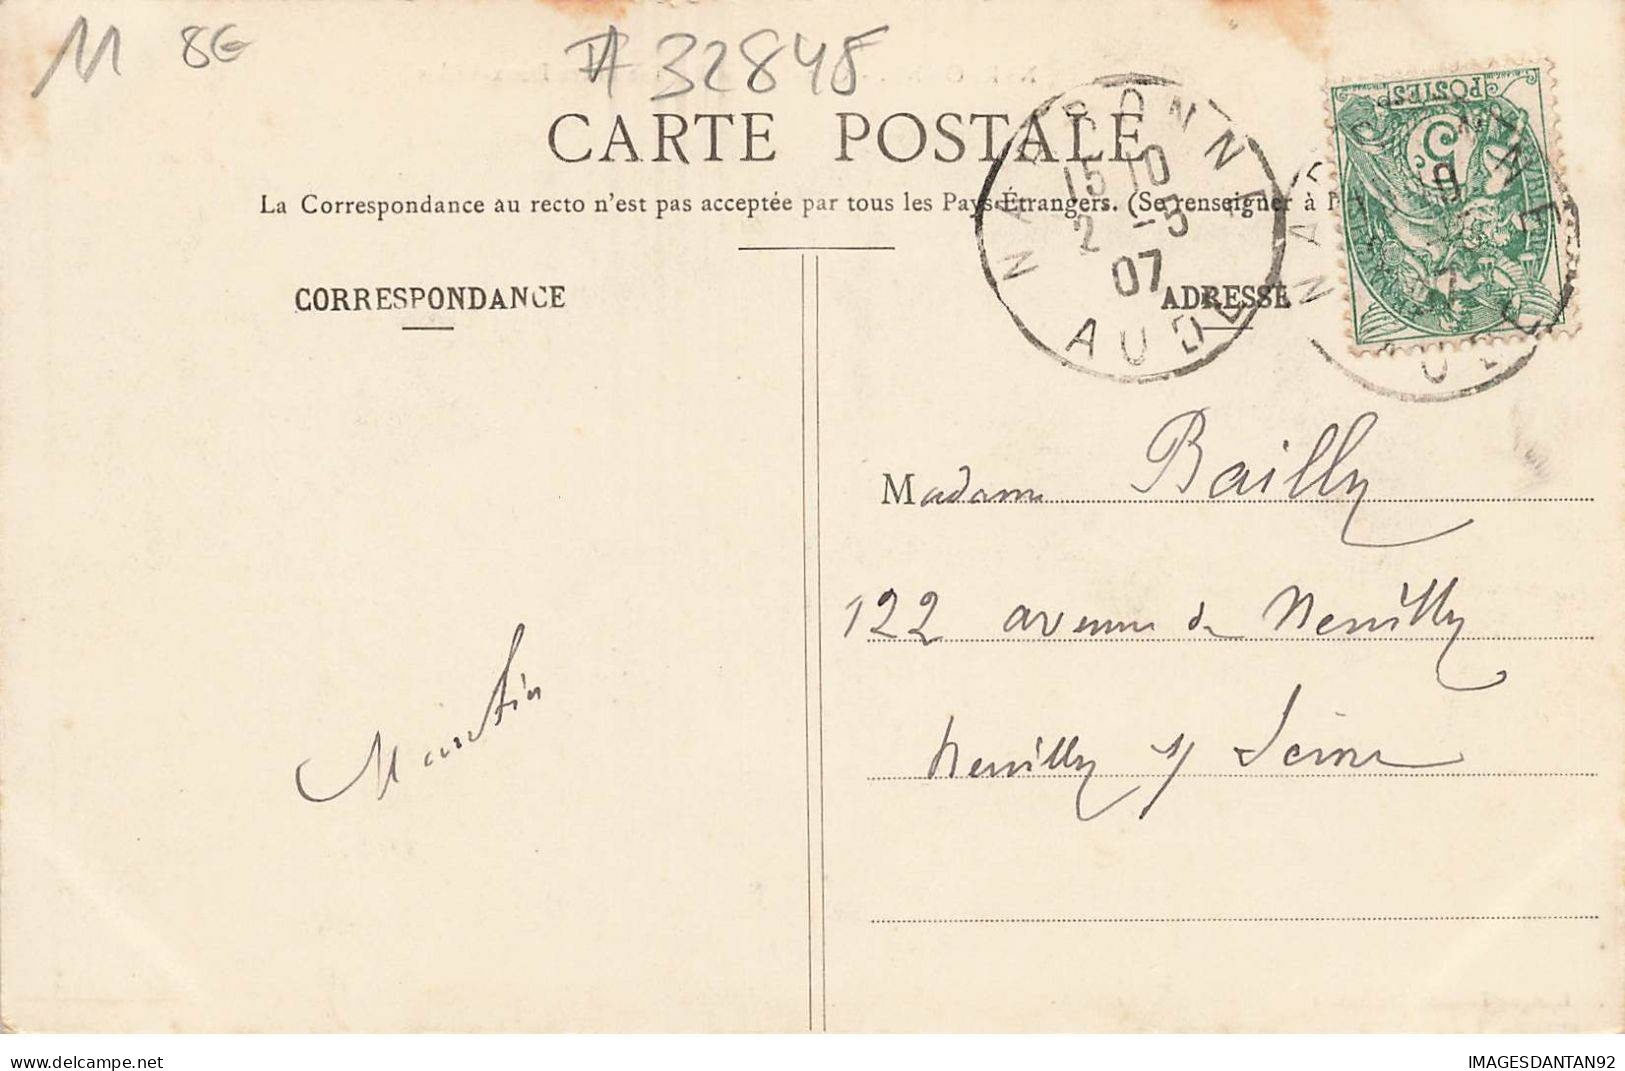 11 8€ #32848
CARTE POSTALE
La Correspondance au recto n'est pas acceptée par tous les Pays Étrangers. (Se renseigner à
NARBONNE
15 10
2 -3
07
AUDE
POSTES
5
CORRESPONDANCE
ADRESSE
Madame Bailly
122 avenue de Neuilly
Neuilly s/ Seine
Martin
delcampe.net
IMAGESDANTAN92